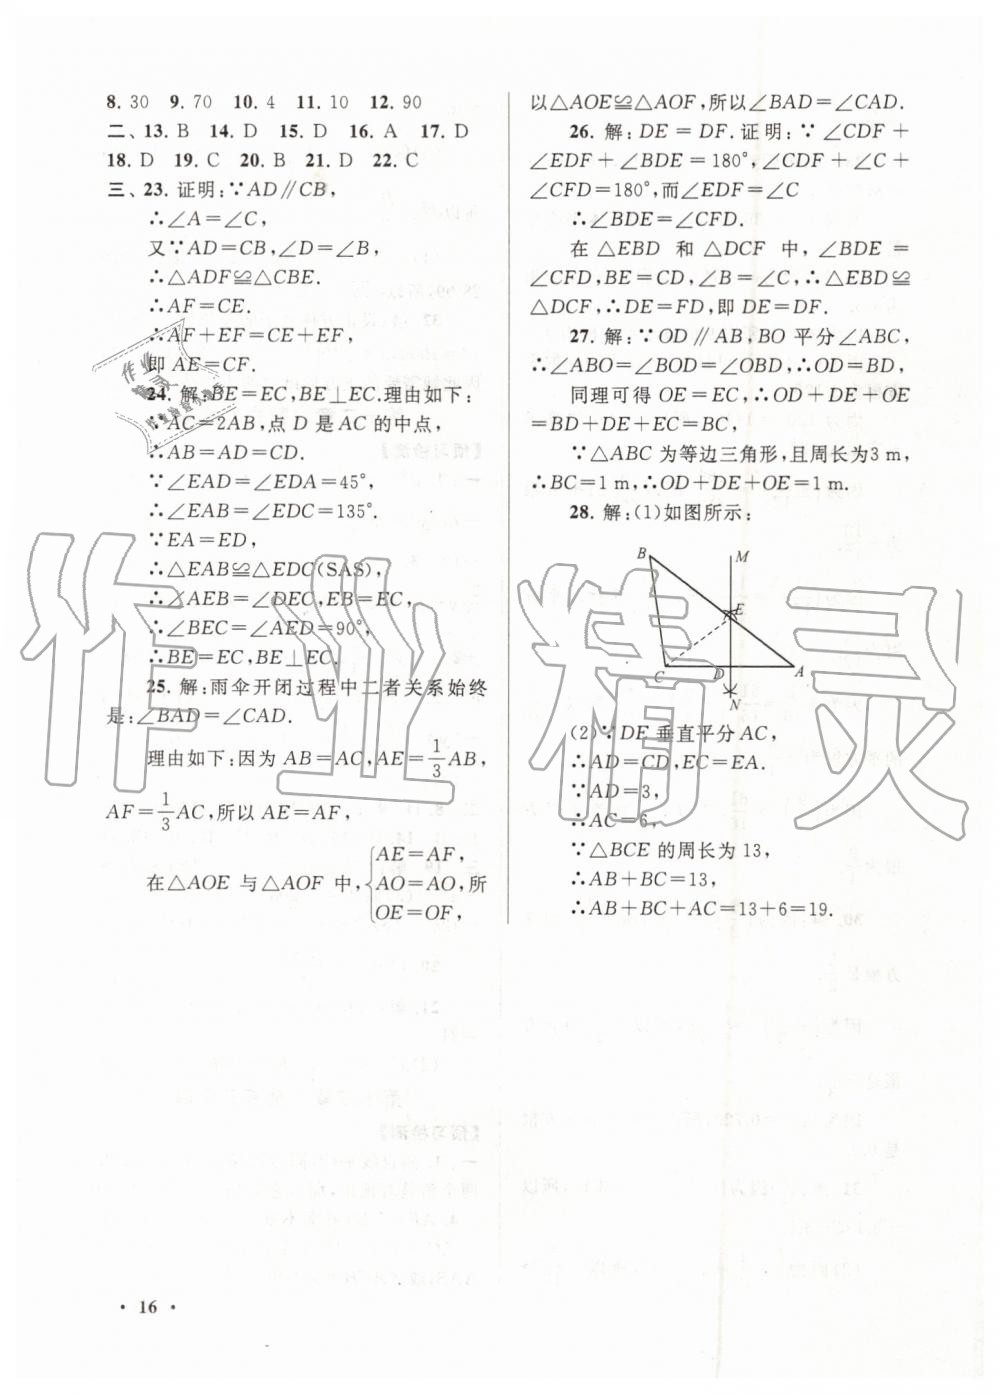 8. 30　9. 70　10. 4　11. 10　12. 90
二、13. B　14. D　15. D　16. A　17. D
18. D　19. C　20. B　21. D　22. C
三、23. 证明:∵AD∥CB,
∴∠A=∠C,
又∵AD=CB,∠D=∠B,
∴△ADF≌△CBE.
∴AF=CE.
∴AF+EF=CE+EF,
即 AE=CF.
24. 解:BE=EC,BE⊥EC.理由如下:
∵AC=2AB,点 D 是 AC 的中点,
∴AB=AD=CD.
∵∠EAD=∠EDA=45°,
∴∠EAB=∠EDC=135°.
∵EA=ED,
∴△EAB≌△EDC(SAS),
∴∠AEB=∠DEC,EB=EC,
∴∠BEC=∠AED=90°,
∴BE=EC,BE⊥EC.
25. 解:雨伞开闭过程中二者关系始终
是:∠BAD=∠CAD.
理由如下:因为 AB=AC,AE=1/3AB,
AF=1/3AC,所以 AE=AF,
在△AOE 与△AOF 中,{AE=AF,
AO=AO,所
OE=OF,
以△AOE≌△AOF,所以∠BAD=∠CAD.
26. 解:DE=DF.证明:∵∠CDF+
∠EDF+∠BDE=180°,∠CDF+∠C+
∠CFD=180°,而∠EDF=∠C
∴∠BDE=∠CFD.
在△EBD 和△DCF 中,∠BDE=
∠CFD,BE=CD,∠B=∠C,∴△EBD≌
△DCF,∴DE=FD,即 DE=DF.
27. 解:∵OD∥AB,BO 平分∠ABC,
∴∠ABO=∠BOD=∠OBD,∴OD=BD,
同理可得 OE=EC,∴OD+DE+OE
=BD+DE+EC=BC,
∵△ABC 为等边三角形,且周长为3 m,
∴BC=1 m,∴OD+DE+OE=1 m.
28. 解:(1)如图所示:
B
M
E
C
D
A
N
(2)∵DE 垂直平分 AC,
∴AD=CD,EC=EA.
∵AD=3,
∴AC=6,
∵△BCE 的周长为 13,
∴AB+BC=13,
∴AB+BC+AC=13+6=19.
· 16 ·
作业精灵